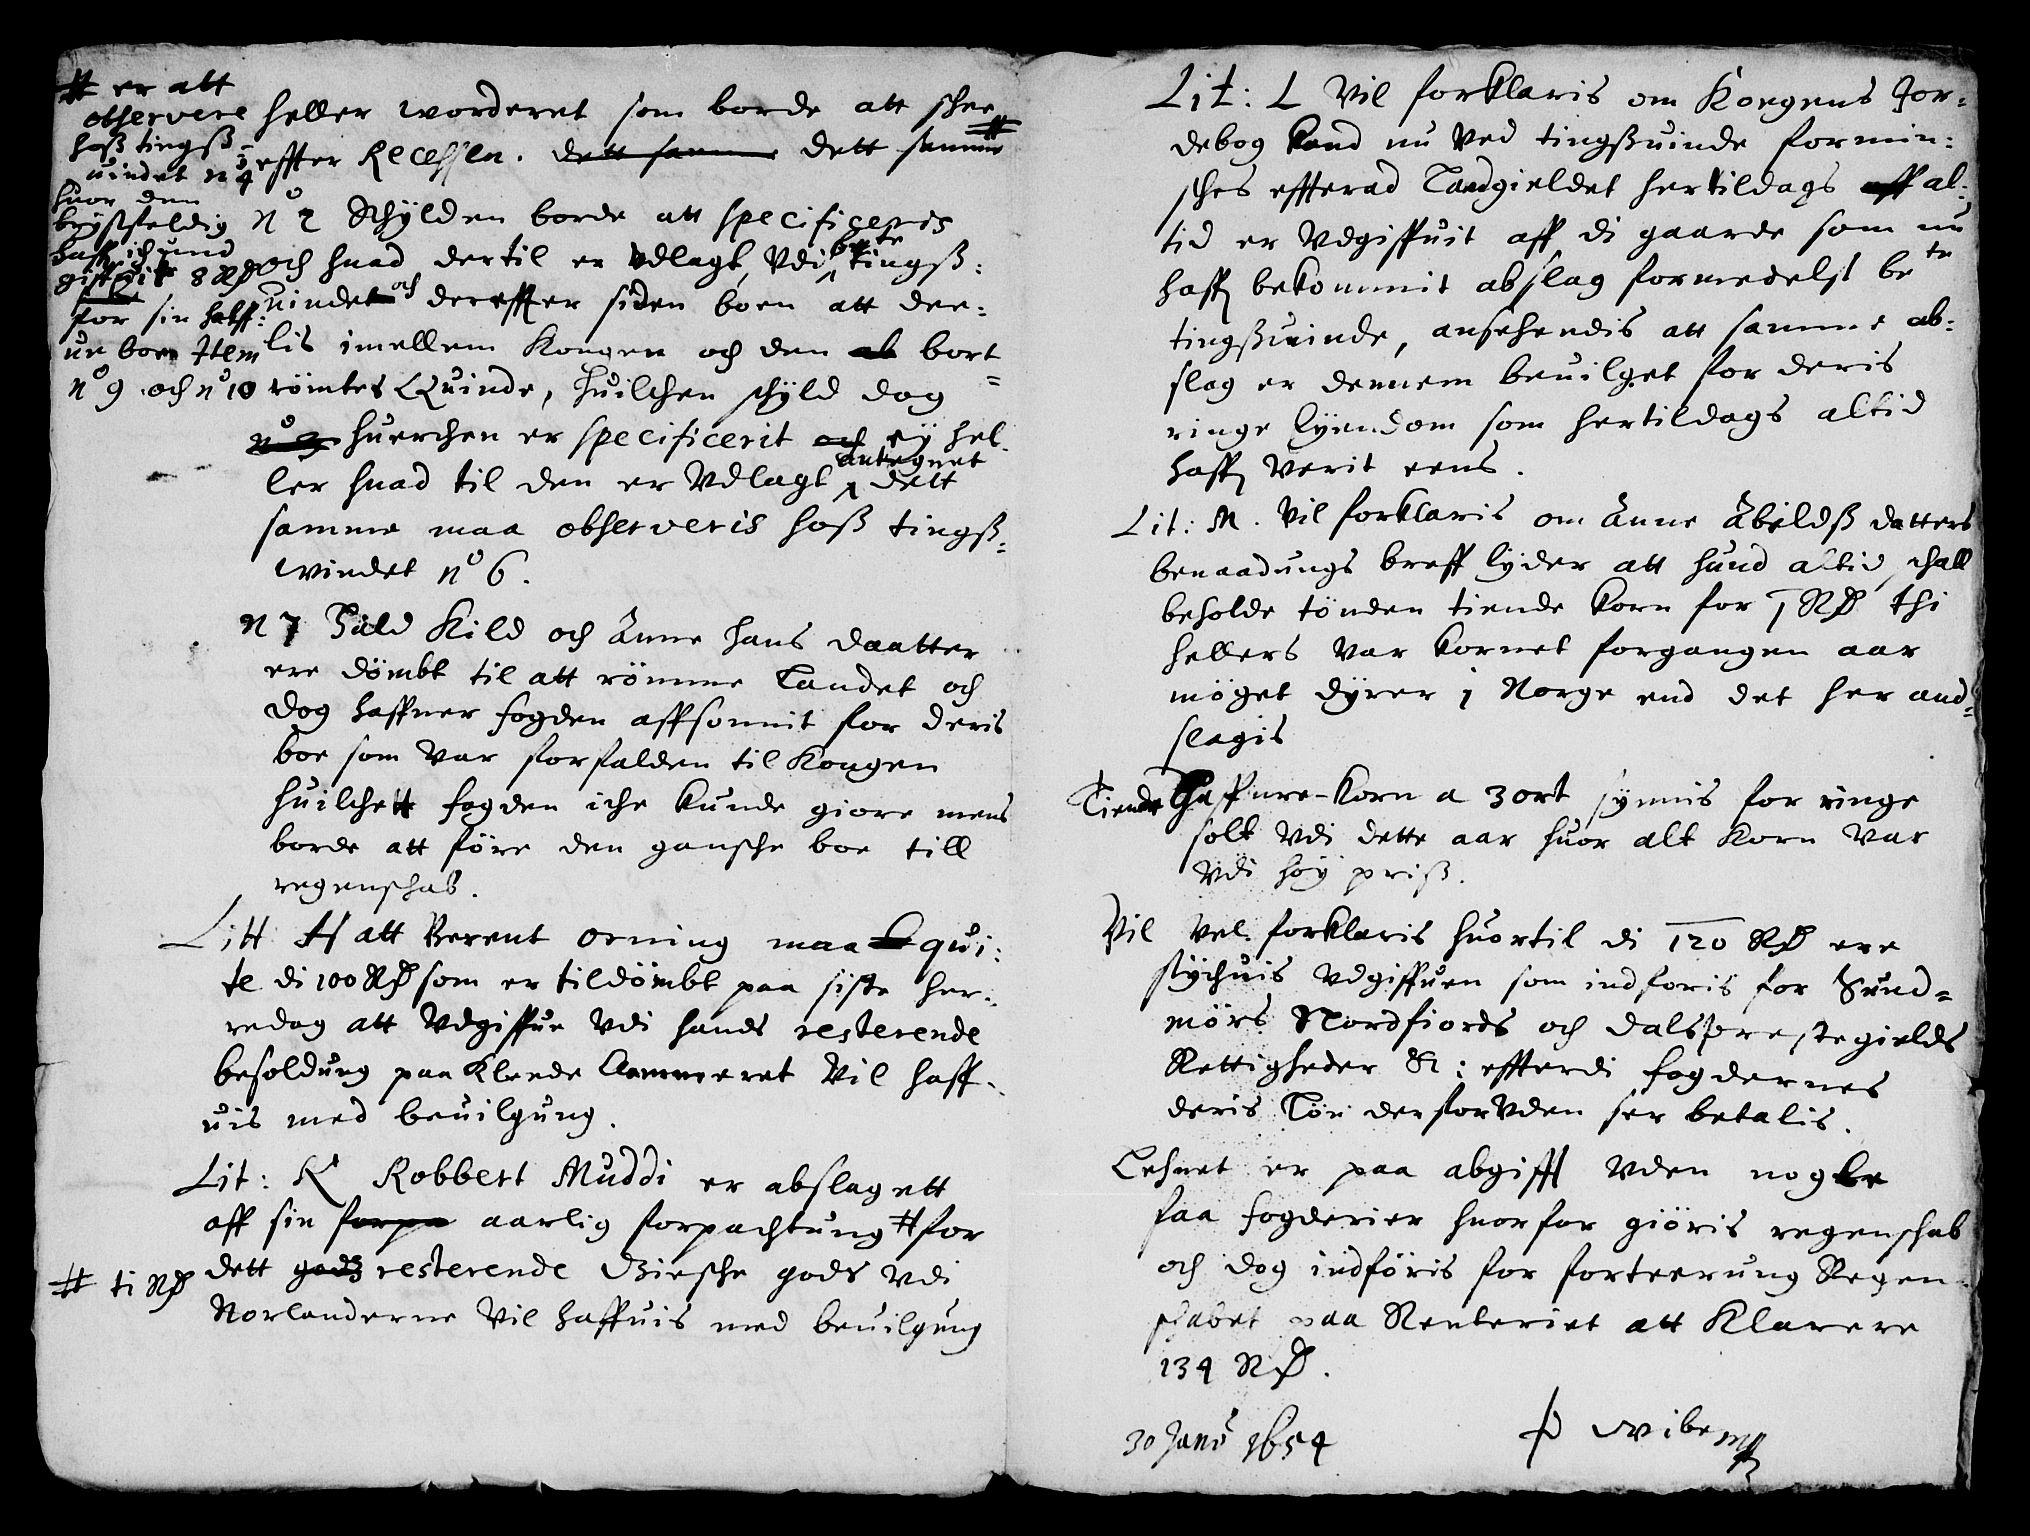 # er att
observere
hoß tingß-
uindet no 4
huor den
brystfeldig
haffr ichund
gifuit 8 Rd
for sin halff:
ue boe Item
no 9 och no 10
heller worderet som borde att schee
effter Recessen. dett samme dett samme #
no 2 Schylden borde att specificeris
och huad dertil er vdlagt, vdi be:te tingß:
uindet och dereffter siden boen att dee:
lis imellem Kongen och den ab bort=
römtes Quinde, huilchen schyld dog
no 3 huerchen er specificerit och ey hel
ler huad til den er vdlagt antegnet dett
samme maa observeris hoß tingß=
windet no 6.
N 7 Kild och Anne hans daatter
ere dömbt til att römme Landet och
dog haffuer fogden affsonnit for deris
boe som var forfalden til Kongen
huilchett fogden iche kunde giore mens
borde att före den gansche boe till
regenschab.
Litt H att Berent Orning maa qui:
te di 100 Rd som er tildömbt paa siste her:
redag att vdgiffue vdi hands resterende
besoldung paa Klede Cammeret vil haff-
uis med beuilgung.
Lit: K Robbert Muddi er abslagett
aff sin forpa aarlig forpachtung # for
dett gods resterende Giesche gods vdi
# ti Rd
Norlanderne vil haffuis med beuilgung
Lit: L Vil forklaris om Kongens Jor=
debog kand nu ved tingßuinde formin:
sches effterad Landgieldet hertildags aff al:
tid er vdgiffuit aff di gaarde som nu
haffr bekommit abslag formedelst be:te
tingßuinde, ansehendis att samme ab:
slag er dennem beuilget for deris
ringe Eyendom som hertildags altid
haffr verit eens.
Lit: M. Vil forklaris om Anne Abildß datters
benaadungs breff lyder att hund altid schall
beholde tönden tiende korn for 1 Rd thi
hellers var kornet forgangen aar
möget dyrer i Norge end det her and=
slagis
Tiende Haffure-Korn a 3 ort synnis for ringe
solt vdi dette aar huor alt Korn var
vdi höy priß.
Vil vel forklaris huortil di 120 Rd ere
stychuis vdgiffuen som indföris for Sund=
mörs Nordfiords och Dals prestegields
Rettigheder &c: effterdi fogdernes
deris Lön derforvden ser betalis.
Lehnet er paa abgifft vden nogle
faa fogderier huorfor giöris regenschab
och dog indföris for forteerung Regen=
schabet paa Renteriet att Klarere
134 Rd.
30 Janu 1654
P Wibe mp